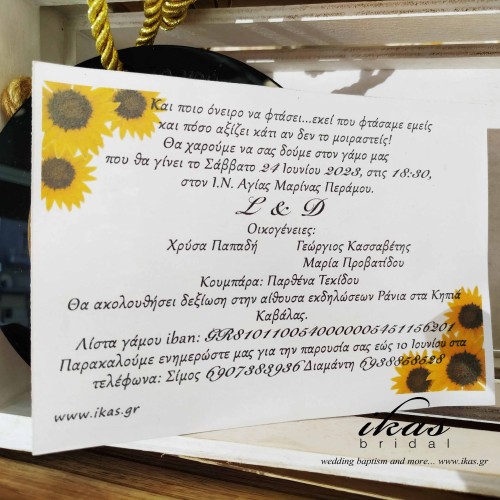 Και ποιο όνειρο να φτάσει...εκεί που φτάσαμε εμείς
και πόσο αξίζει κάτι αν δεν το μοιραστείς!
Θα χαρούμε να σας δούμε στον γάμο μας
που θα γίνει το Σάββατο 24 Ιουνίου 2023, στις 18:30,
στον Ι.Ν. Αγίας Μαρίνας Περάμου.
L & D
Οικογένειες:
Χρύσα Παπαδή Γεώργιος Κασσαβέτης
Μαρία Προβατίδου
Κουμπάρα: Παρθένα Τεκίδου
Θα ακολουθήσει δεξίωση στην αίθουσα εκδηλώσεων Ράνια στα Κηπιά
Καβάλας.
Λίστα γάμου iban: GR8101100540000005451156201
Παρακαλούμε ενημερώστε μας για την παρουσία σας εώς 10 Ιουνίου στα
τηλέφωνα: Σίμος 6907383936 Διαμάντη 6938858528
www.ikas.gr
ikas
bridal
wedding baptism and more... www.ikas.gr